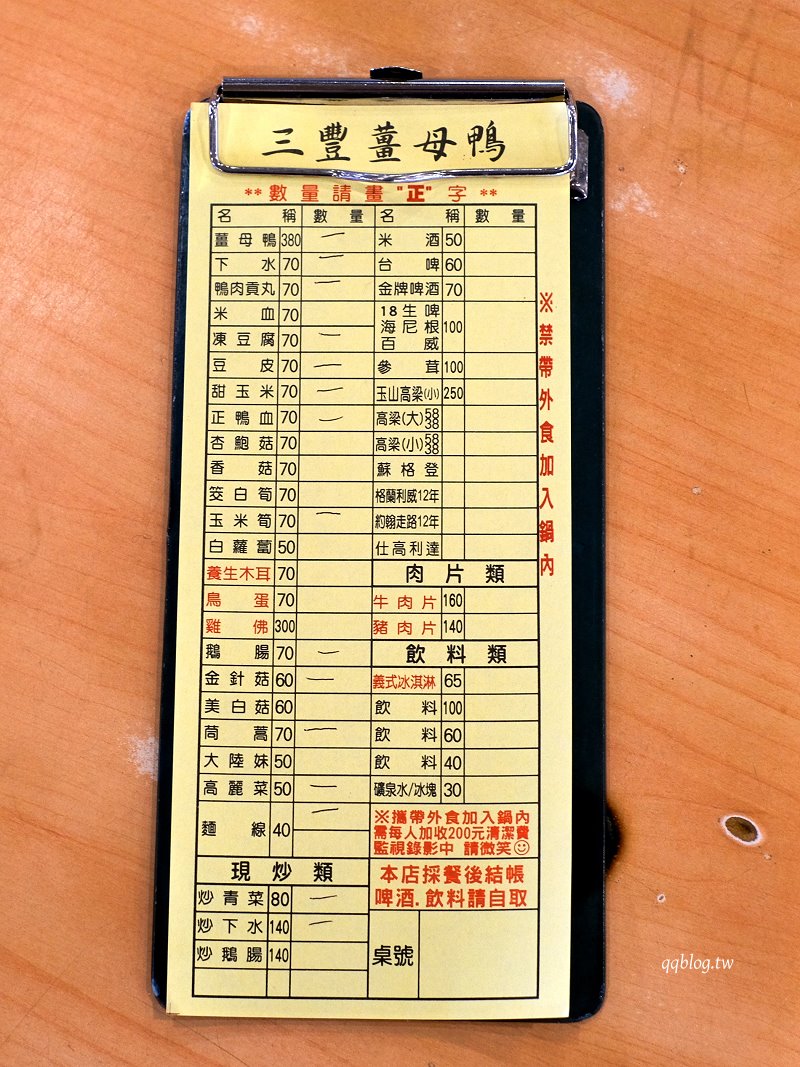 三豐薑母鴨
**數量請畫"正"字**
名稱 數量 名稱 數量
薑母鴨 380 一 米酒 50
下水 70 一 台啤 60
鴨肉貢丸 70 一 金牌啤酒 70
米血 70
18生啤
海尼根 100
百威
凍豆腐 70 一
豆皮 70 一 參茸 100
甜玉米 70 一 玉山高梁(小) 250
正鴨血 70 一 高梁(大) 58 38
杏鮑菇 70 高梁(小) 58 38
香菇 70 蘇格登
筊白筍 70 格蘭利威12年
玉米筍 70 一 約翰走路12年
白蘿蔔 50 仕高利達
養生木耳 70 肉片類
鳥蛋 70 牛肉片 160
雞佛 300 豬肉片 140
鵝腸 70 一 飲料類
金針菇 60 一 義式冰淇淋 65
美白菇 60 飲料 100
茼蒿 70 一 飲料 60
大陸妹 50 飲料 40
高麗菜 50 一 礦泉水/冰塊 30
麵線 40 一
※攜帶外食加入鍋內
需每人加收200元清潔費
監視錄影中 請微笑☺
現炒類
炒青菜 80 一
炒下水 140 一
炒鵝腸 140
本店採餐後結帳
啤酒.飲料請自取
桌號
※禁帶外食加入鍋內
qqblog.tw